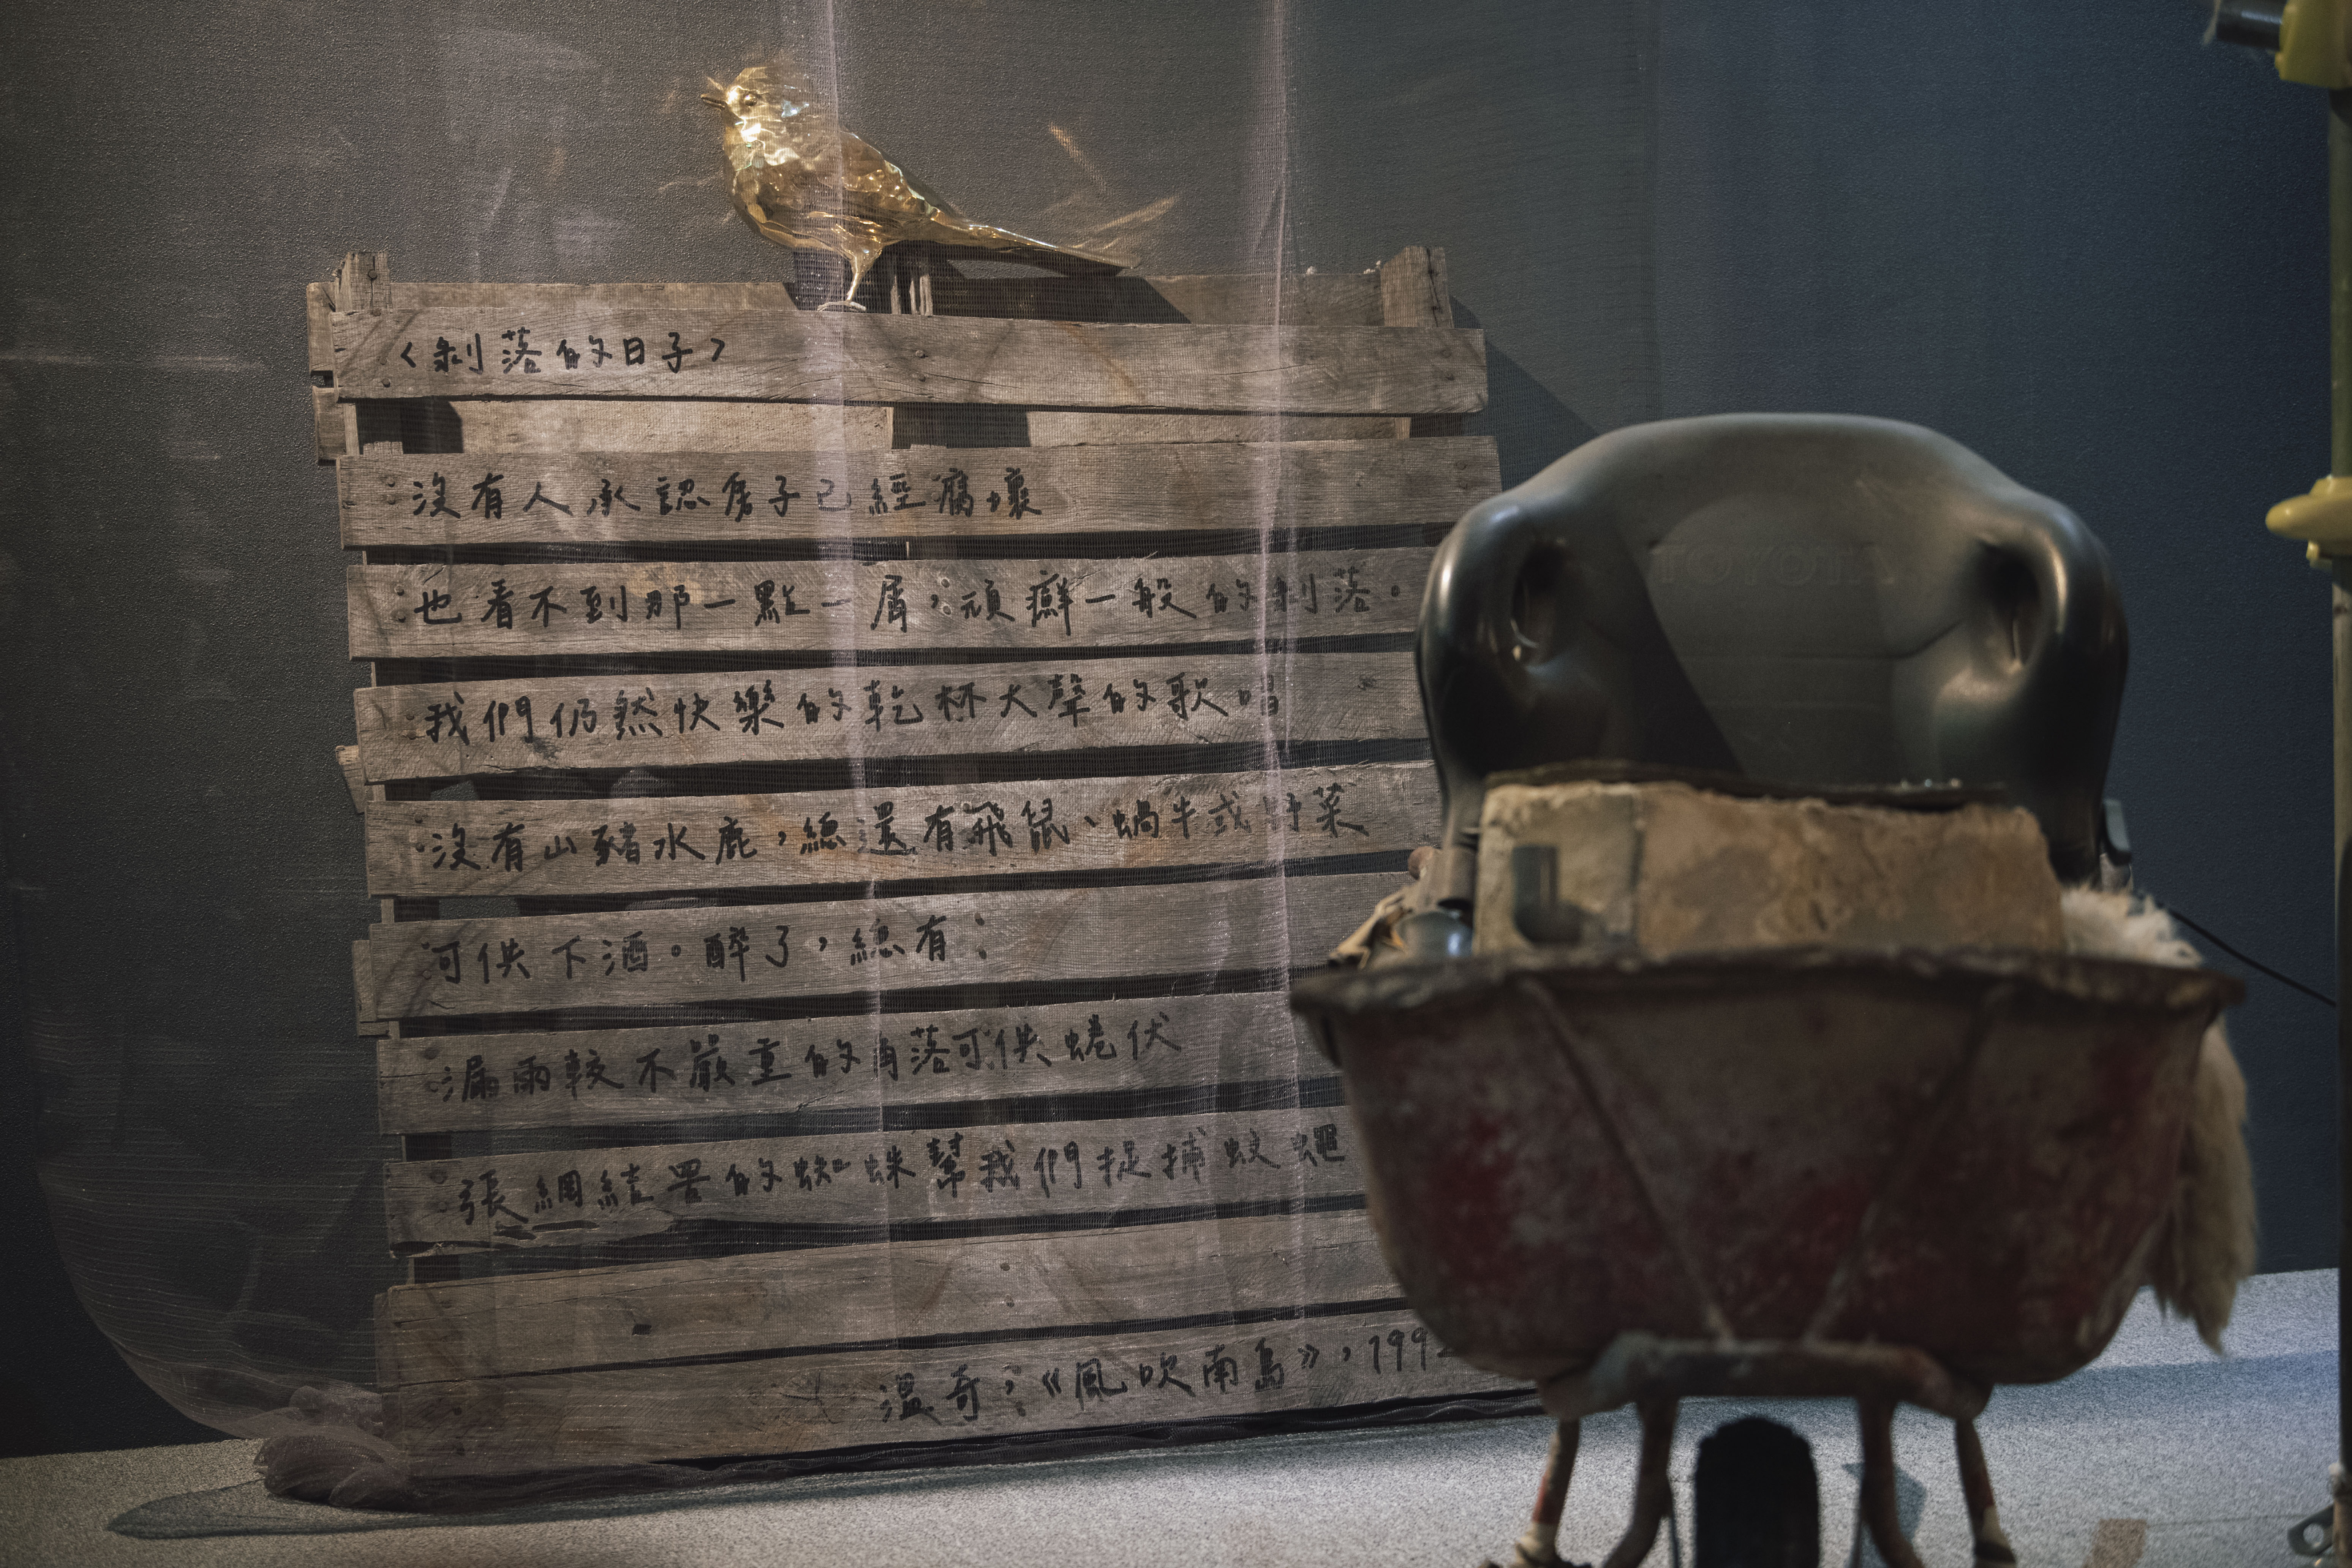 〈剝落的日子〉
沒有人承認房子已經腐壞
也看不到那一點一屑，頑癬一般的剝落。
我們仍然快樂的乾杯大聲的歌唱
沒有山豬水鹿，總還有飛鼠、蝸牛或野菜
可供下酒。醉了，總有：
漏雨較不嚴重的角落可供蜷伏
張網結罟的蜘蛛幫我們捉捕蚊蠅
溫奇，《風吹南島》，199
TOYOTA